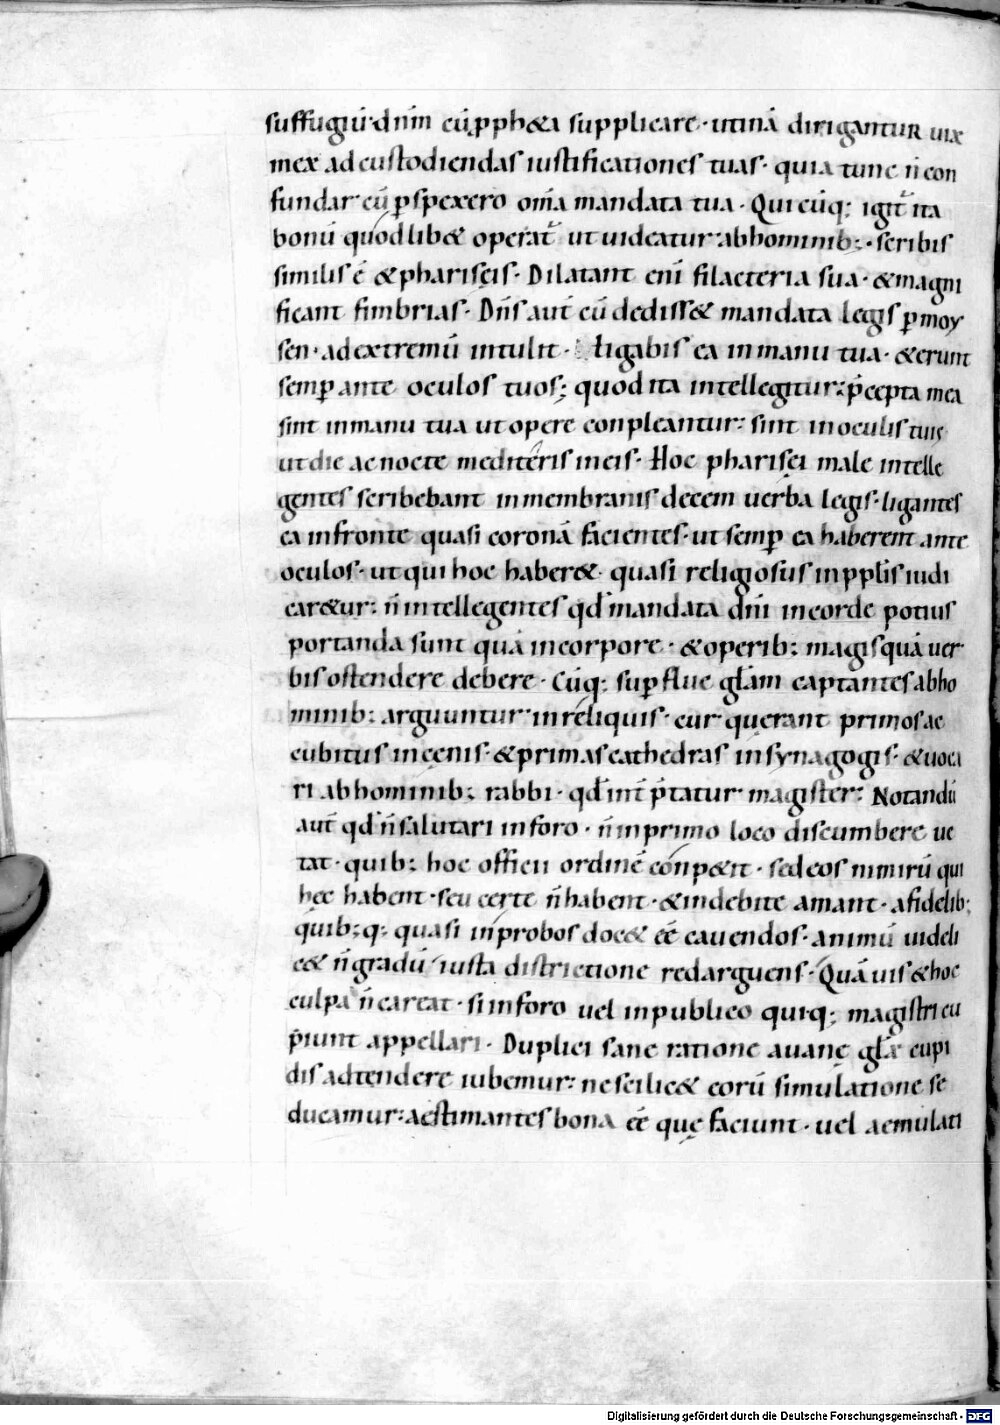 suffugiū· dn̄m cū pph&a supplicare· utinā dirigantur uix
meę ad custodiendas iustificationes tuas· quia tunc n̄ con
fundar cū pspexero om̄a mandata tua· Qui cūq; igit᷑ ita
bonū quodlib& operat᷑ ut uideatur ab hominib;· scribis
similis ē & phariseis· Dilatant eni᷑ filacteria sua· & magni
ficant fimbrias· Dn̄s aut̄ cū dediss& mandata legis p moy
sen· ad extremū intulit· ligabis ea in manu tua· & erunt
semp ante oculos tuos; quod ita intellegitur: p̄cepta mea
sint in manu tua ut opere conpleantur: sint in oculis tuis
ut die ac nocte mediteris in eis· Hoc pharisęi male intelle
gentes scribebant in membranis decem uerba legis· ligantes
ea in fronte quasi coronā facientes· ut semp ea haberent ante
oculos· ut qui hoc haber& quasi religiosus in pplis iudi
car&ur: n̄ intellegentes qd mandata dn̄i in corde potius
portanda sunt quā in corpore· & operib; magis quā uer
bis ostendere debere· Cūq; supflue gl̄am captantes ab ho
minib; arguuntur in reliquis· cur querant primos ac
cubitus in cęnis· & primas cathedras in synagogis· & uoca
ri ab hominib; rabbi· qd int̄p̄tatur magister: Notandū
aut̄ qd n̄ salutari in foro· n̄ in primo loco discumbere ue
tat· quib; hoc officii ordinē conp&it· sed eos nimirū qui
hęc habent· seu certe n̄ habent· & indebite amant· a fidelib;
quib;q; quasi inprobos doc& eē cauendos· animū uideli
c& n̄ gradū iusta districtione redarguens· Quāuis & hoc
culpa n̄ careat· si in foro uel in publico quiq; magistri cu
piunt appellari· Duplici sane ratione a uanę gl̄ae cupi
dis adtendere iubemur: ne scilic& eorū simulatione se
ducamur: aestimantes bona eē quę faciunt· uel aemulati
Digitalisierung gefördert durch die Deutsche Forschungsgemeinschaft - DFG